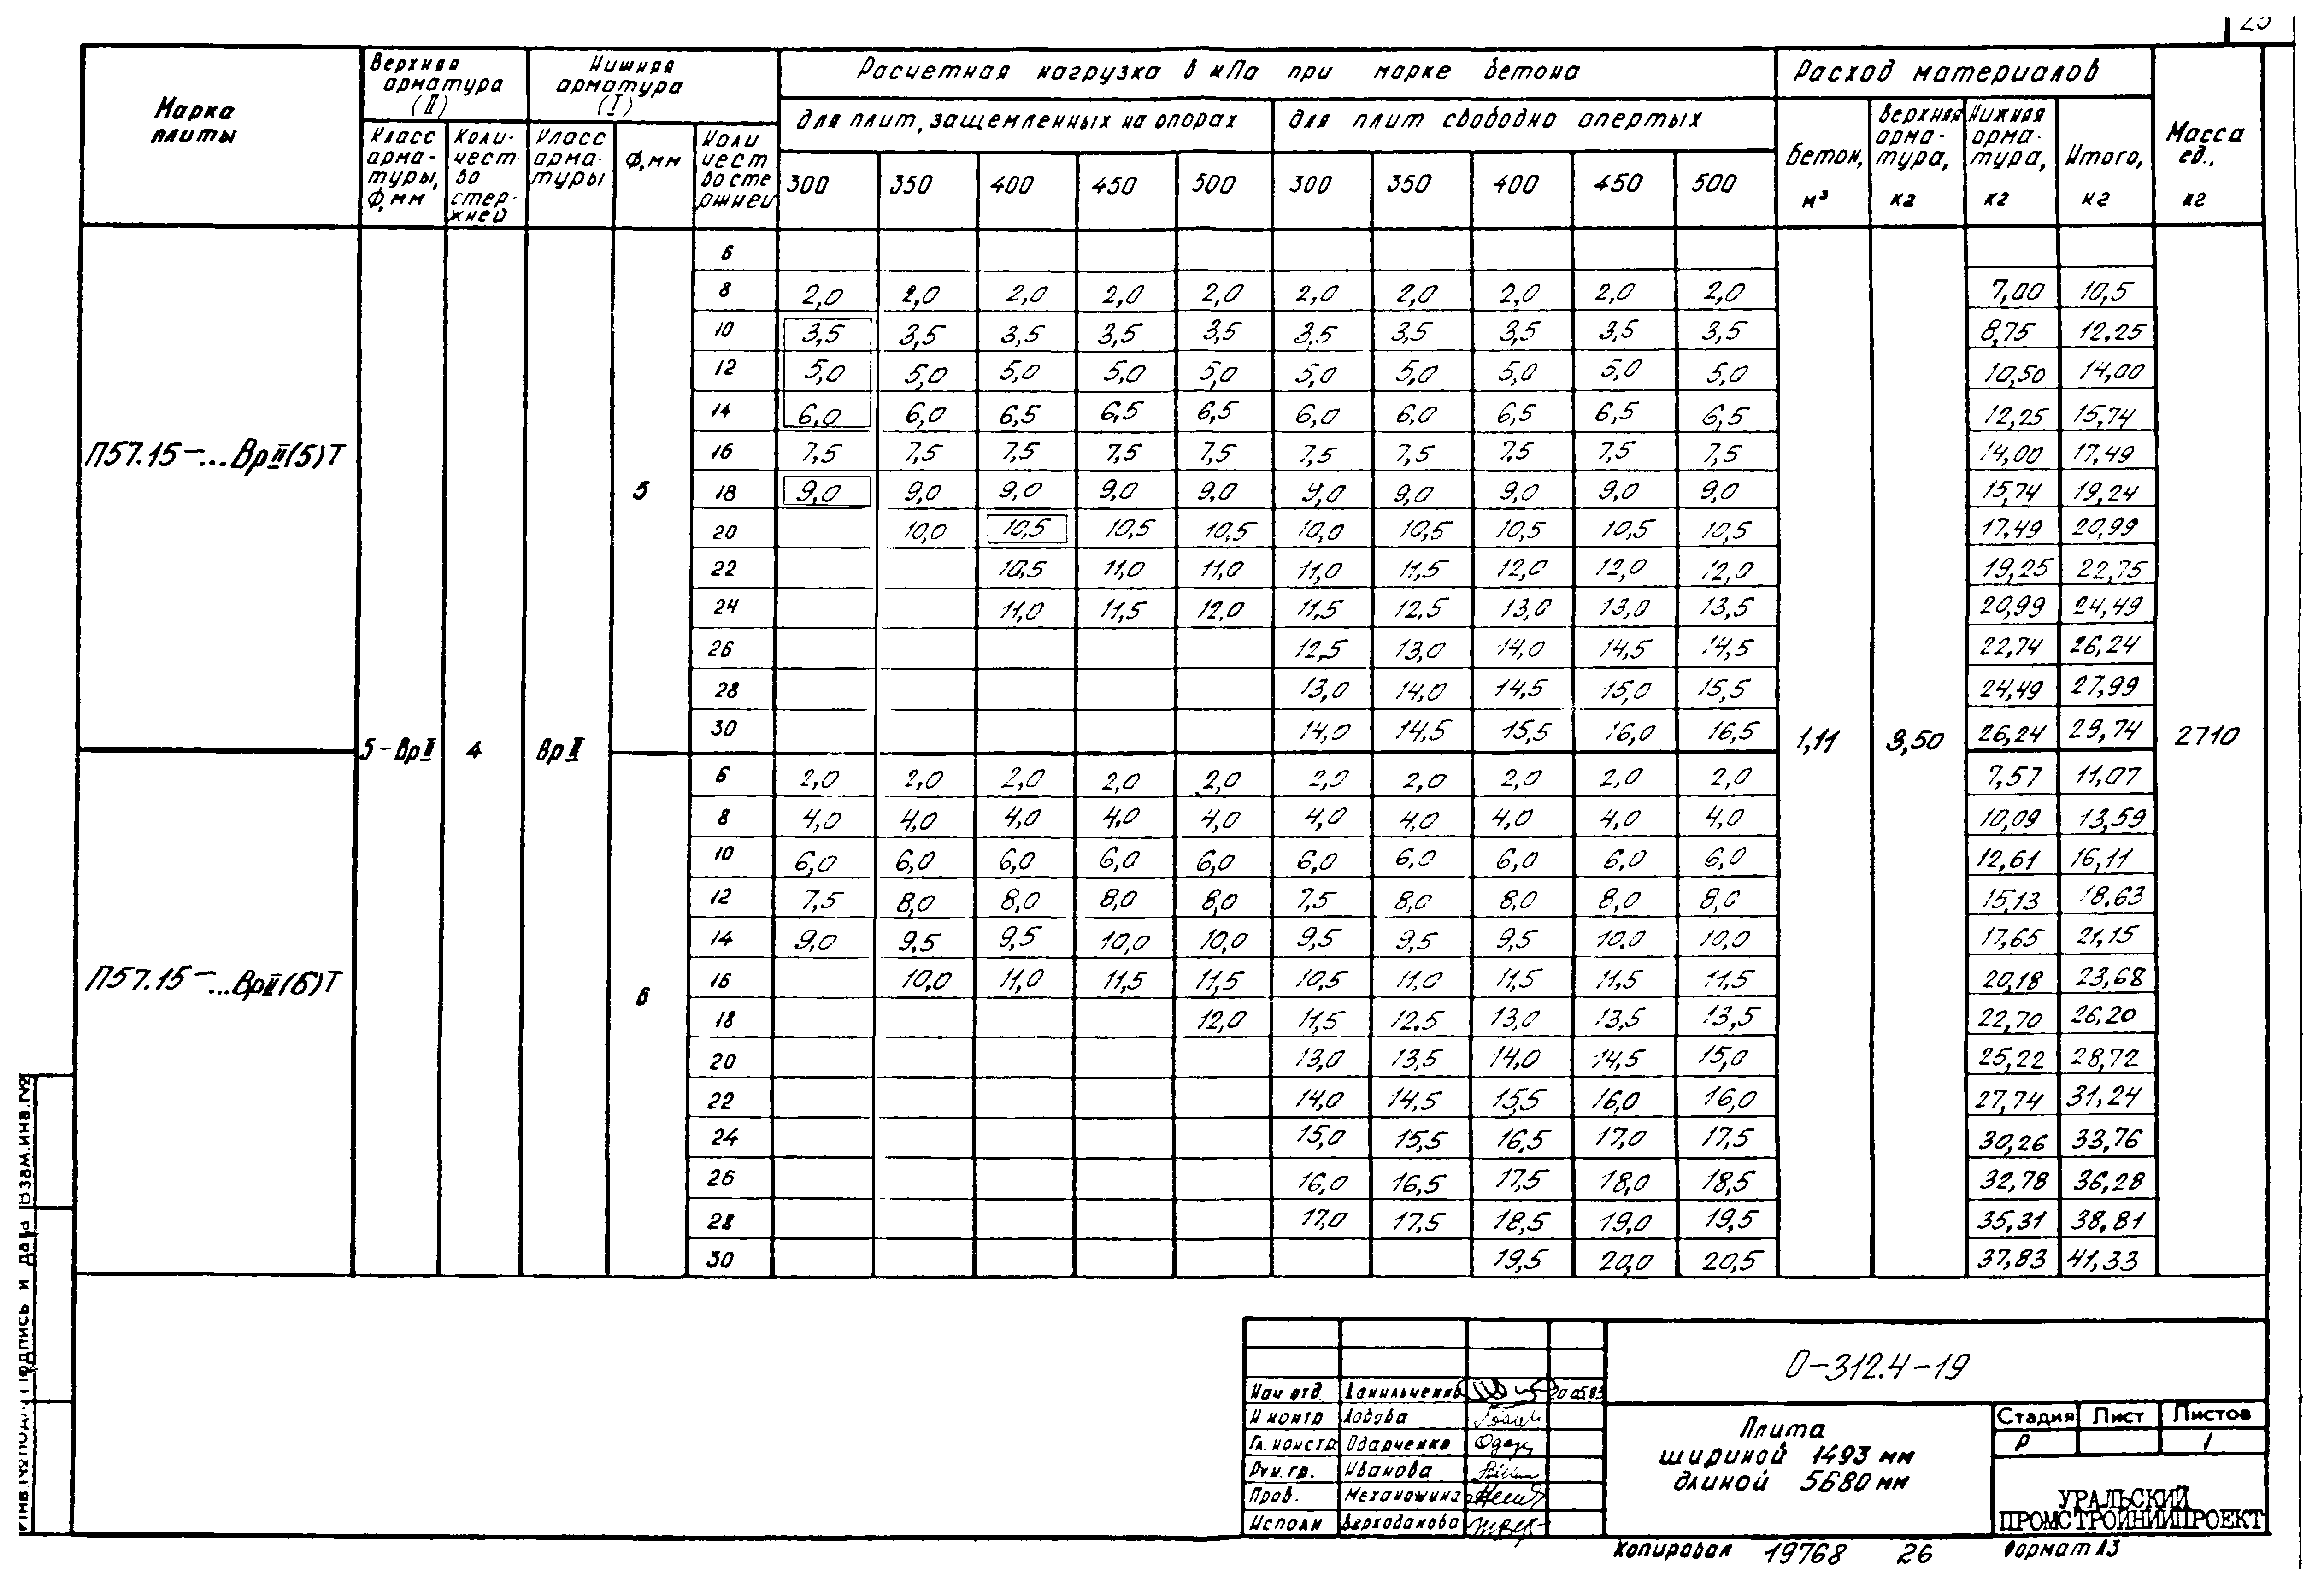 Марка плиты | Верхняя арматура (II) | Нижняя арматура (I) | Расчетная нагрузка в кПа при марке бетона | Расход материалов | Масса ед., кг
для плит, защемленных на опорах | для плит свободно опертых
Класс арма-туры, Ф,мм | Коли-чест-во стер-жней | Класс арма-туры | Ф,мм | Коли чест во сте ржней | 300 | 350 | 400 | 450 | 500 | 300 | 350 | 400 | 450 | 500 | Бетон, м³ | Верхняя арма-тура, кг | Нижняя арма-тура, кг | Итого, кг
П57.15-...ВрII(5)Т | 5-ВрII | 4 | ВрII | 5 | 1,11 | 3,50 | 2710
6
8 | 2,0 | 2,0 | 2,0 | 2,0 | 2,0 | 2,0 | 2,0 | 2,0 | 2,0 | 2,0 | 7,00 | 10,5
10 | 3,5 | 3,5 | 3,5 | 3,5 | 3,5 | 3,5 | 3,5 | 3,5 | 3,5 | 3,5 | 8,75 | 12,25
12 | 5,0 | 5,0 | 5,0 | 5,0 | 5,0 | 5,0 | 5,0 | 5,0 | 5,0 | 5,0 | 10,50 | 14,00
14 | 6,0 | 6,0 | 6,5 | 6,5 | 6,5 | 6,0 | 6,0 | 6,5 | 6,5 | 6,5 | 12,25 | 15,74
16 | 7,5 | 7,5 | 7,5 | 7,5 | 7,5 | 7,5 | 7,5 | 7,5 | 7,5 | 7,5 | 14,00 | 17,49
18 | 9,0 | 9,0 | 9,0 | 9,0 | 9,0 | 9,0 | 9,0 | 9,0 | 9,0 | 9,0 | 15,74 | 19,24
20 | 10,0 | 10,5 | 10,5 | 10,5 | 10,0 | 10,5 | 10,5 | 10,5 | 10,5 | 17,49 | 20,99
22 | 10,5 | 11,0 | 11,0 | 11,0 | 11,5 | 12,0 | 12,0 | 12,0 | 19,25 | 22,75
24 | 11,0 | 11,5 | 12,0 | 11,5 | 12,5 | 13,0 | 13,0 | 13,5 | 20,99 | 24,49
26 | 12,5 | 13,0 | 14,0 | 14,5 | 14,5 | 22,74 | 26,24
28 | 13,0 | 14,0 | 14,5 | 15,0 | 15,5 | 24,49 | 27,99
30 | 14,0 | 14,5 | 15,5 | 16,0 | 16,5 | 26,24 | 29,74
П57.15-...ВрII(6)Т | 6
6 | 2,0 | 2,0 | 2,0 | 2,0 | 2,0 | 2,0 | 2,0 | 2,0 | 2,0 | 2,0 | 7,57 | 11,07
8 | 4,0 | 4,0 | 4,0 | 4,0 | 4,0 | 4,0 | 4,0 | 4,0 | 4,0 | 4,0 | 10,09 | 13,59
10 | 6,0 | 6,0 | 6,0 | 6,0 | 6,0 | 6,0 | 6,0 | 6,0 | 6,0 | 6,0 | 12,61 | 16,11
12 | 7,5 | 8,0 | 8,0 | 8,0 | 8,0 | 7,5 | 8,0 | 8,0 | 8,0 | 8,0 | 15,13 | 18,63
14 | 9,0 | 9,5 | 9,5 | 10,0 | 10,0 | 9,5 | 9,5 | 9,5 | 10,0 | 10,0 | 17,65 | 21,15
16 | 10,0 | 11,0 | 11,5 | 11,5 | 10,5 | 11,0 | 11,5 | 11,5 | 11,5 | 20,18 | 23,68
18 | 12,0 | 11,5 | 12,5 | 13,0 | 13,5 | 13,5 | 22,70 | 26,20
20 | 13,0 | 13,5 | 14,0 | 14,5 | 15,0 | 25,22 | 28,72
22 | 14,0 | 14,5 | 15,5 | 16,0 | 16,0 | 27,74 | 31,24
24 | 15,0 | 15,5 | 16,5 | 17,0 | 17,5 | 30,26 | 33,76
26 | 16,0 | 16,5 | 17,5 | 18,0 | 18,5 | 32,78 | 36,28
28 | 17,0 | 17,5 | 18,5 | 19,0 | 19,5 | 35,31 | 38,81
30 | 19,5 | 20,0 | 20,5 | 37,83 | 41,33
Взам.инв.№
Подпись и дата
Инв.№ подл.
Нач. отд. Данильченко 20.05.83
Н контр Лобова
Гл. констр Одарченко
Рук. гр. Иванова
Пров. Механошина
Исполн Верходанова
0-312.4-19
Плита
шириной 1493 мм
длиной 5680 мм
Стадия Лист Листов
Р 1
УРАЛЬСКИЙ
ПРОМСТРОЙНИИПРОЕКТ
Копировал 19768 26 Формат А3